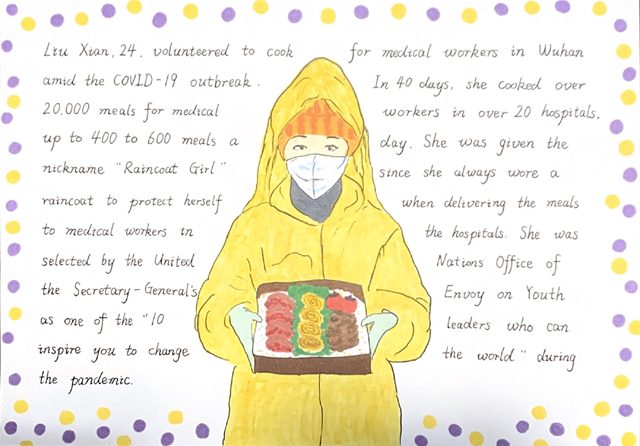 Liu Xian, 24, volunteered to cook for medical workers in Wuhan
amid the COVID-19 outbreak. In 40 days, she cooked over
20,000 meals for medical workers in over 20 hospitals,
up to 400 to 600 meals a day. She was given the
nickname "Raincoat Girl" since she always wore a
raincoat to protect herself when delivering the meals
to medical workers in the hospitals. She was
selected by the United Nations Office of
the Secretary-General's Envoy on Youth
as one of the "10 leaders who can
inspire you to change the world" during
the pandemic.